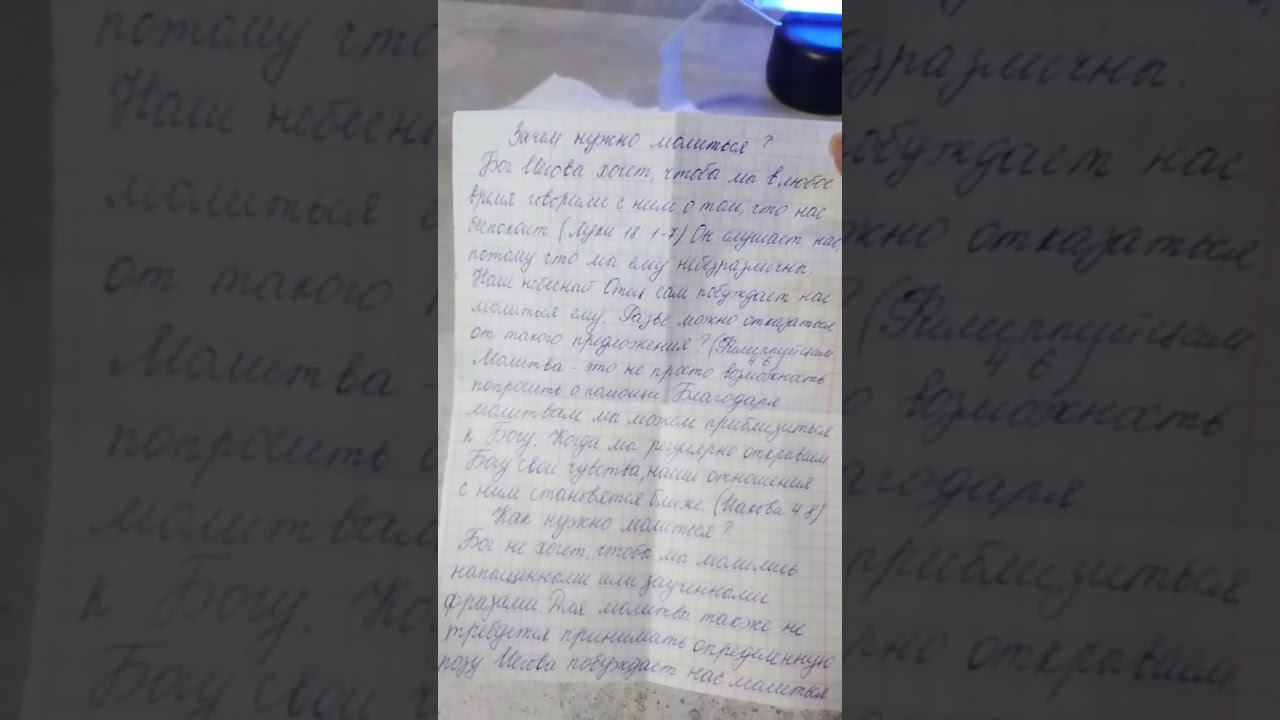 Зачем нужно молиться?
Бог Иегова хочет, чтобы мы в любое
время говорили с ним о том, что нас
беспокоит (Луки 18 1-7) Он слушает нас,
потому что мы ему небезразличны.
Наш небесный Отец сам побуждает нас
молиться ему. Разве можно отказаться
от такого предложения? (Филиппийцам
4 6
Молитва - это не просто возможность
попросить о помощи Благодаря
молитвам мы можем приблизиться
к Богу. Когда мы регулярно открываем
Богу свои чувства, наши отношения
с ним становятся ближе (Иакова 4 8)
Как нужно молиться?
Бог не хочет, чтобы мы молились
напыщенными или заученными
фразами. Для молитвы также не
требуется принимать определенную
позу. Иегова побуждает нас молиться